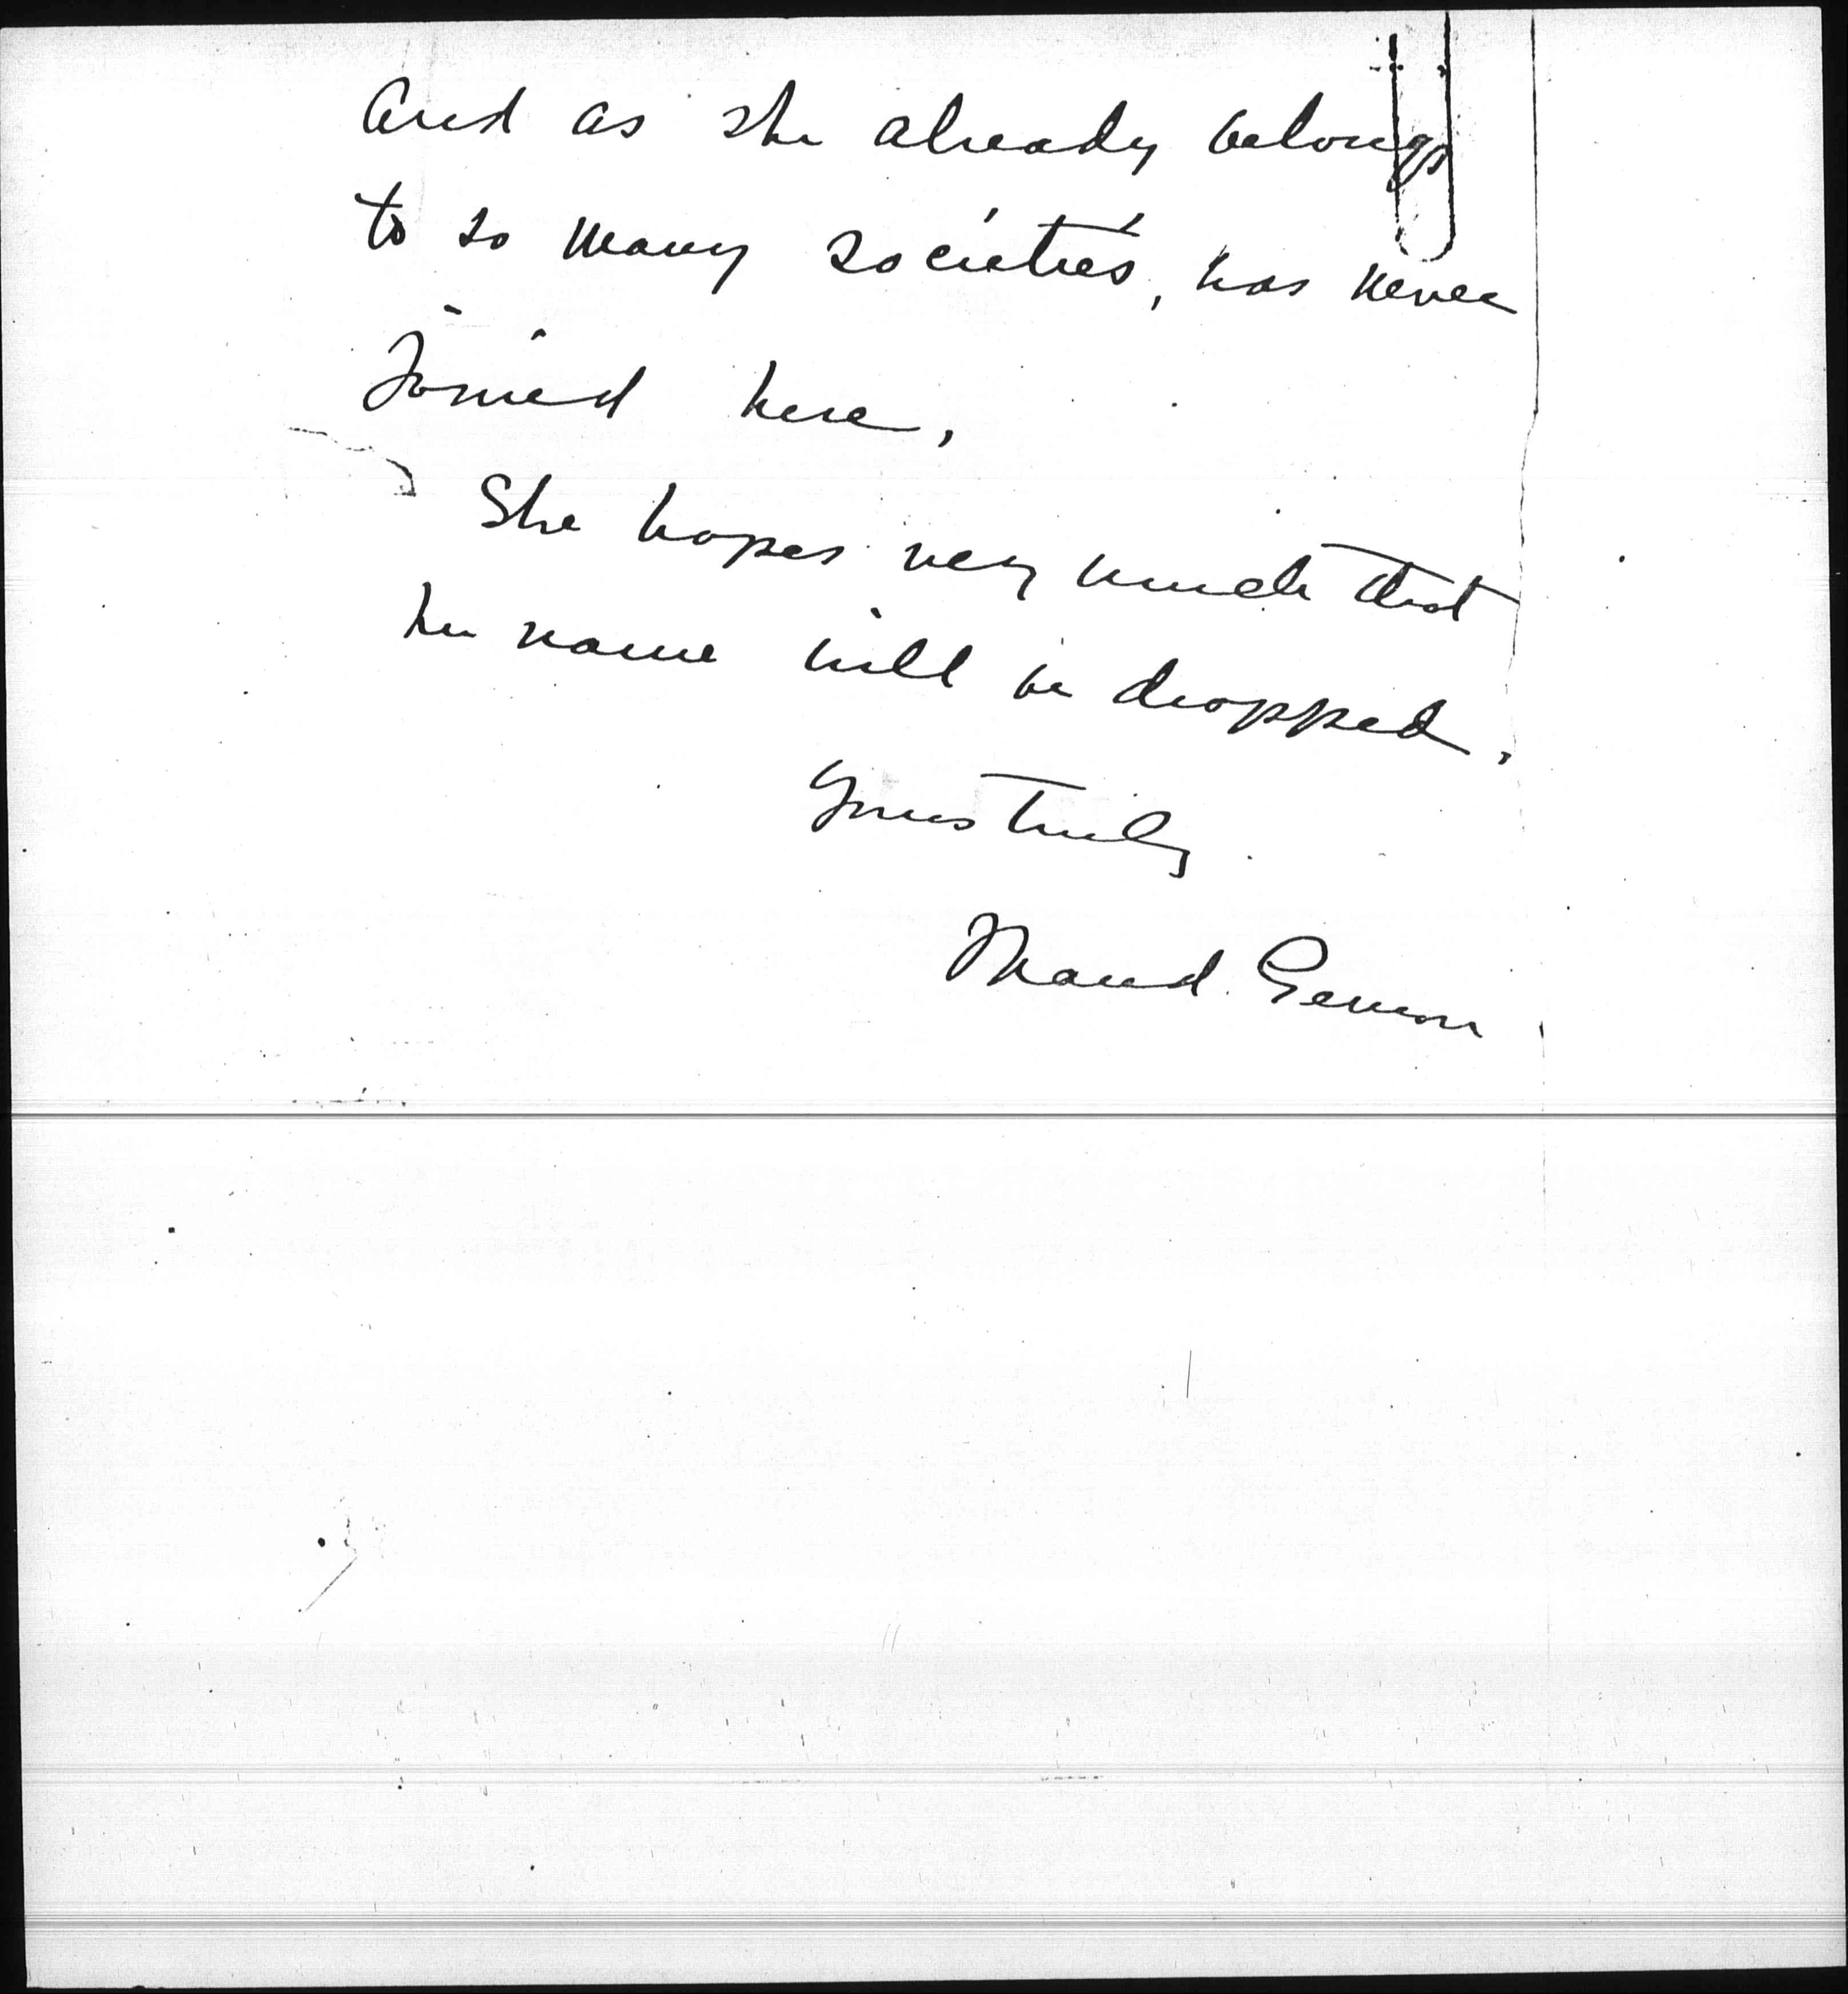 And as she already belongs
to so many societies, has never
joined here.
She hopes very much that
her name will be dropped.
Yours truly
Maud